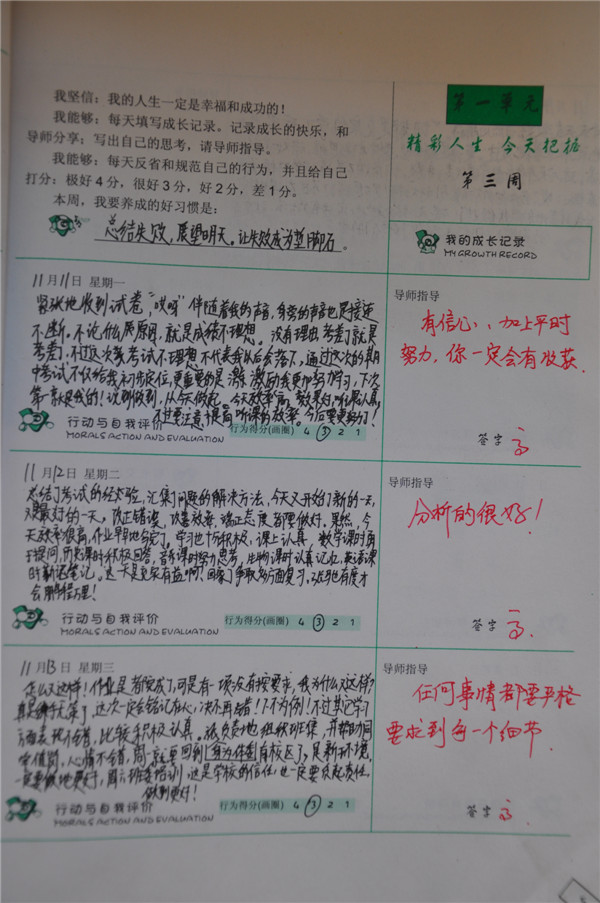 我坚信：我的人生一定是幸福和成功的！
我能够：每天填写成长记录。记录成长的快乐，和
导师分享：写出自己的思考，请导师指导。
我能够：每天反省和规范自己的行为，并且给自己
打分：极好4分，很好3分，好2分，差1分。
本周，我要养成的好习惯是：
总结失败，展望明天。让失败成为垫脚石。
第一单元
精彩人生 今天把握
第三周
我的成长记录
MY GROWTH RECORD
11月11日 星期一
紧张地收到试卷，“哎呀”伴随着我的声音，旁的声音也是接连
不断。不论什么原因，就是成绩不理想。没有理由，考差了就是
考差了，不过这次考试不理想不代表我以后会落下，通过这次的期
中考试不仅给我初步定位，更重要的是激励我更加努力学习，下次
第一就是我的！说到做到，从今做起。今天效率高，效果好，听课认真
不过要注意提高听课的效率。今后要更努力！
行动与自我评价
MORALS ACTION AND EVALUATION
行为得分(画圈) 4 3 2 1
导师指导
有信心，加上平时
努力，你一定会有收获.
签字
11月12日 星期二
总结了考试的经验，汇集问题的解决方法，今天又开始了新的一天，
又是美好的一天。改正错误，改善效率，端正态度都要做好。果然，今
天效率很高，作业早早地写完了，学习也十分积极，课上认真，数学课时勇
于提问，历史课时积极回答，音乐课时努力思考，生物课时认真记忆，英语课
时新还笔记。这一天是更有益啊！回家了争取多方面复习，
会鹏程万里！
行动与自我评价
MORALS ACTION AND EVALUATION
行为得分(画圈) 4 3 2 1
导师指导
分析的很好！
签字
11月13日 星期三
怎么又这样！作业是都完成了，可是有一项没有按要求，我为什么又这样？
真是，这次一定会铭记在心，决不再错！下不为例！不过其它学习
方面表现不错，比较积极认真。认真负责地组织班集，并帮助同
学值岗，心情不错，周一就要回到有校区了，是新环境。
一定要做地更好，周六班委培训，这是学校的信任，也一定要负起责任，
做到更好！
行动与自我评价
MORALS ACTION AND EVALUATION
行为得分(画圈) 4 3 2 1
导师指导
任何事情都要严格
要求到每一个细节.
签字